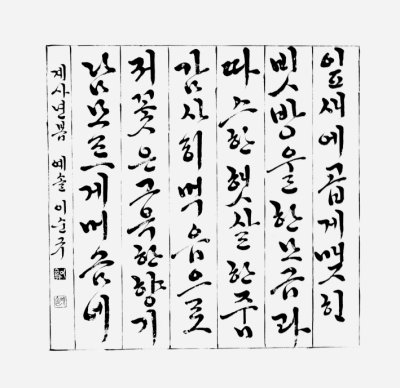 잎새에 곱게 맺힌
빗방울 한 모금과
따스한 햇살 한 줌
감사히 먹음으로
저 꽃은 그윽한 향기
남모르게 머금네
계사년 봄 예솔 이순구